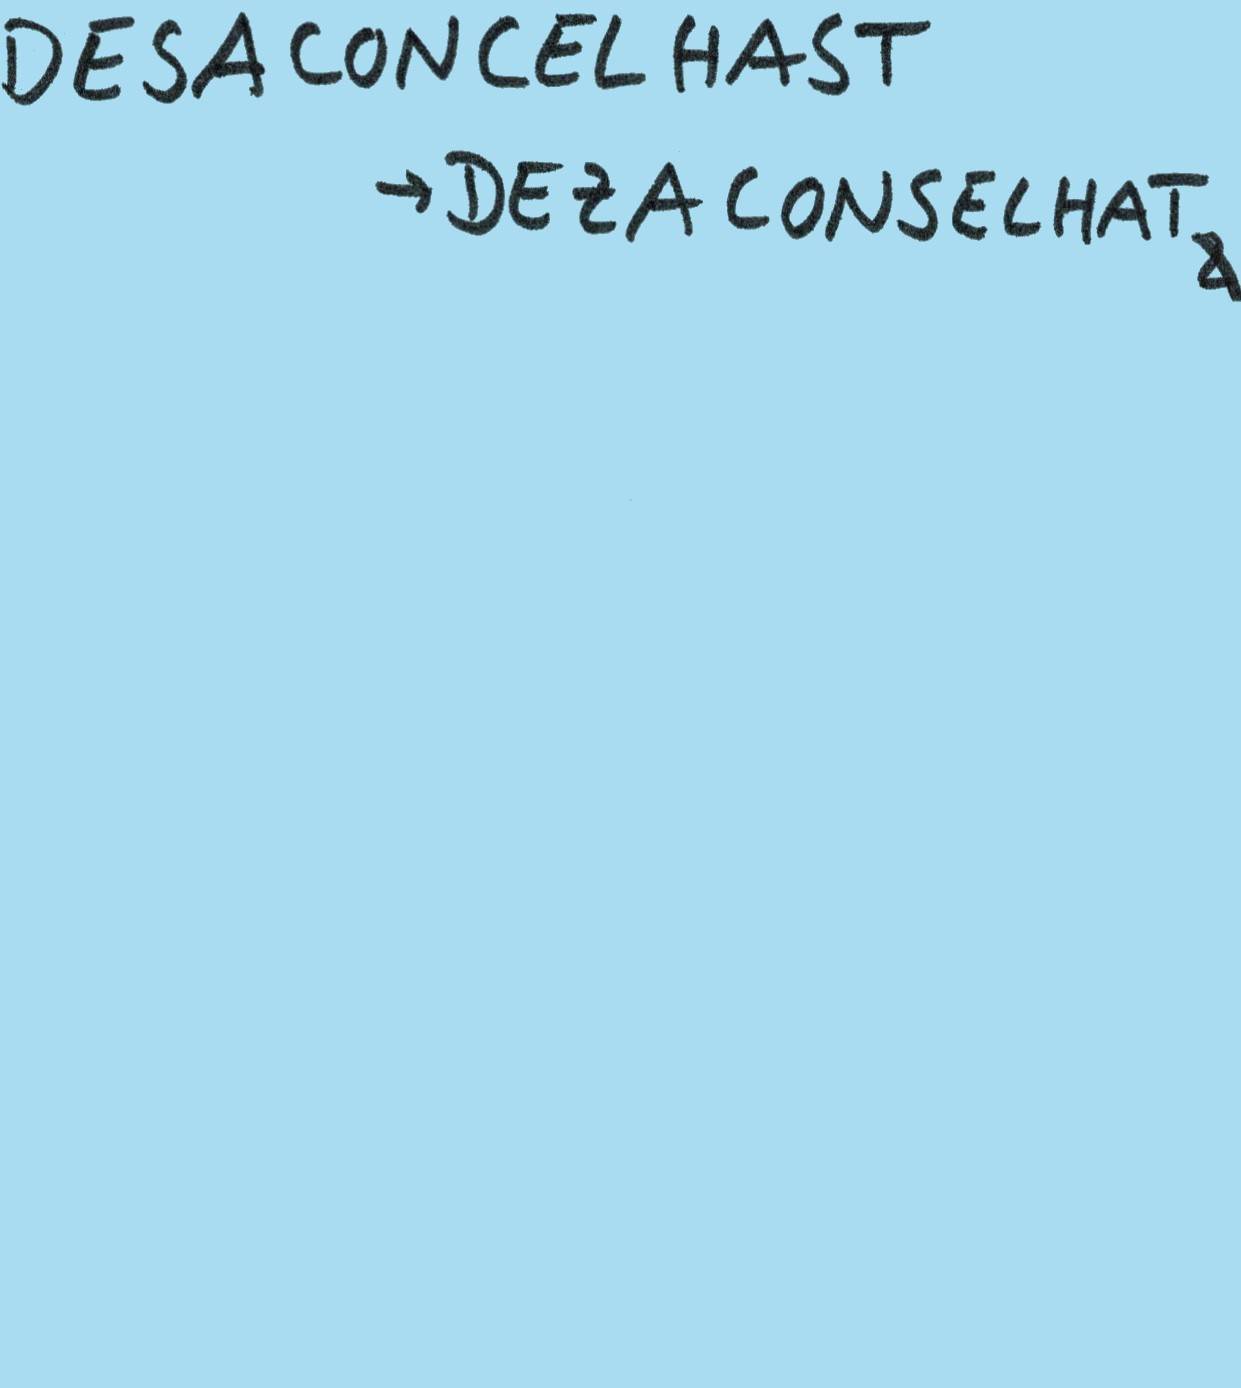 DESACONCELHAST
→DEZACONSELHAT